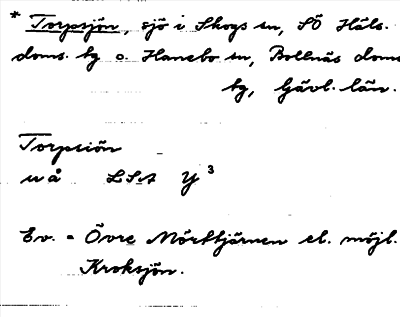 * Torpsjön, sjö i Skogs sn, SÖ Häls.
doms. tg o. Hanebo sn, Bollnäs doms
tg, Gävl. län.
Torpsiön
u å LSA Y 3
Ev. = Övre Mörttjärnen el. möjl.
Kroksjön.